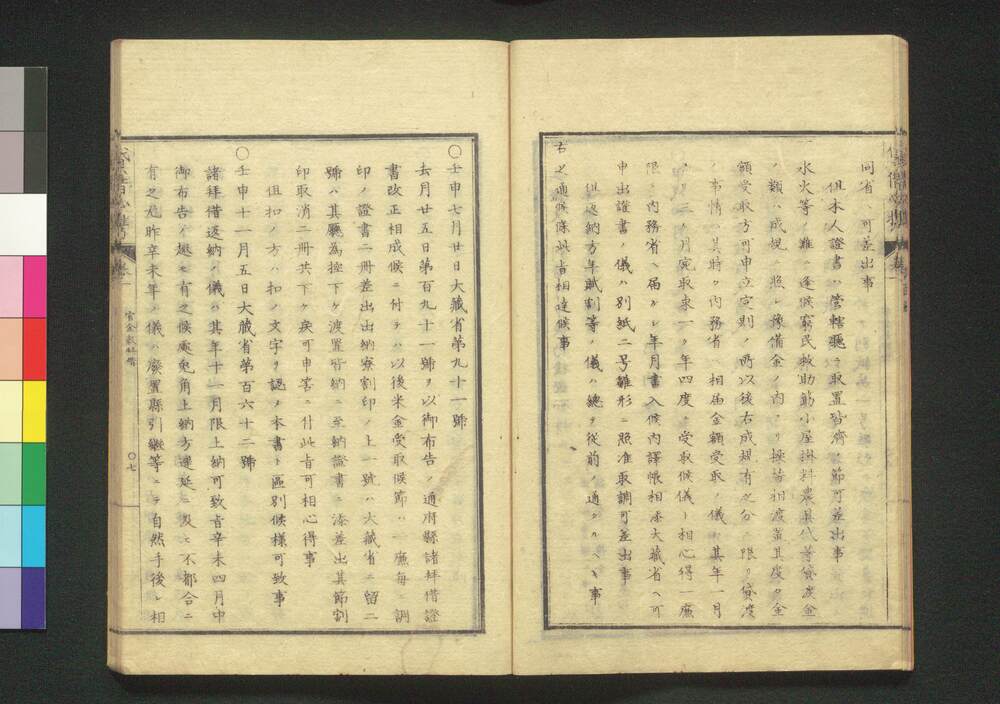 同省ヘ可差出事
但本人證書ハ管轄聽ニ取置皆濟ノ節可差出事
一水火等ノ難ニ逢候窮民救助筋小屋掛料農具代等貸渡金
ノ類ハ成規ニ照シ豫備金ノ内ヨリ操替相渡置其度々金
額受取方可申立定則ノ所以後右成規有之分ニ限リ貸渡
ノ事情ハ其時々内務省ヘ相届金額受取ノ儀ハ其年一月
ノ三ヶ月宛取束一ヶ年四度ニ受取候儀ト相心得一廉
限リ内務省ヘ届ケシ年月書入候内譯帳相添大藏省ヘ可
申出證書ノ儀ハ別紙二号雛形ニ照准取調可差出事
但返納方年賦割等ノ儀ハ總テ從前ノ通タルヘキ事
右之通候條此旨相達候事
〇壬申七月廿日大藏省第九十一號
去月廿五日第百九十一號ヲ以御布告ノ通府縣諸拜借證
書改正相成候ニ付テハ以後米金受取候節ハ一廉每ニ調
印ノ證書二冊差出出納寮割印ノ上一號ハ大藏省ニ留二
號ハ其廳為控下ケ渡置皆納ニ至納證書ニ添差出其節割
印取消二冊共下ケ戾可申筈ニ付此旨可相心得事
但扣ノ方ハ扣ノ文字ヲ認メ本書ト區別候樣可致事
〇壬申十一月五日大藏省第百六十二號
諸拜借返納ノ儀ハ其年十一月限上納可致旨辛未四月中
御布告ノ趣モ有之候處兎角上納方遲延ニ及ヒ不都合ニ
有之尤昨辛未年ノ儀ハ廢置縣引繼等ニテ自然手後レ相
官金貸付皆
〇七